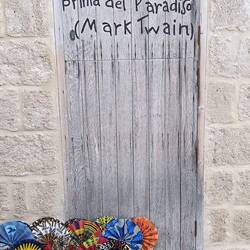 prima del Paradiso
(Mark Twain)